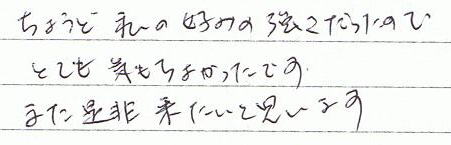 ちょうど私の好みの強さだったので
とても気もちよかったです。
また是非来たいと思います